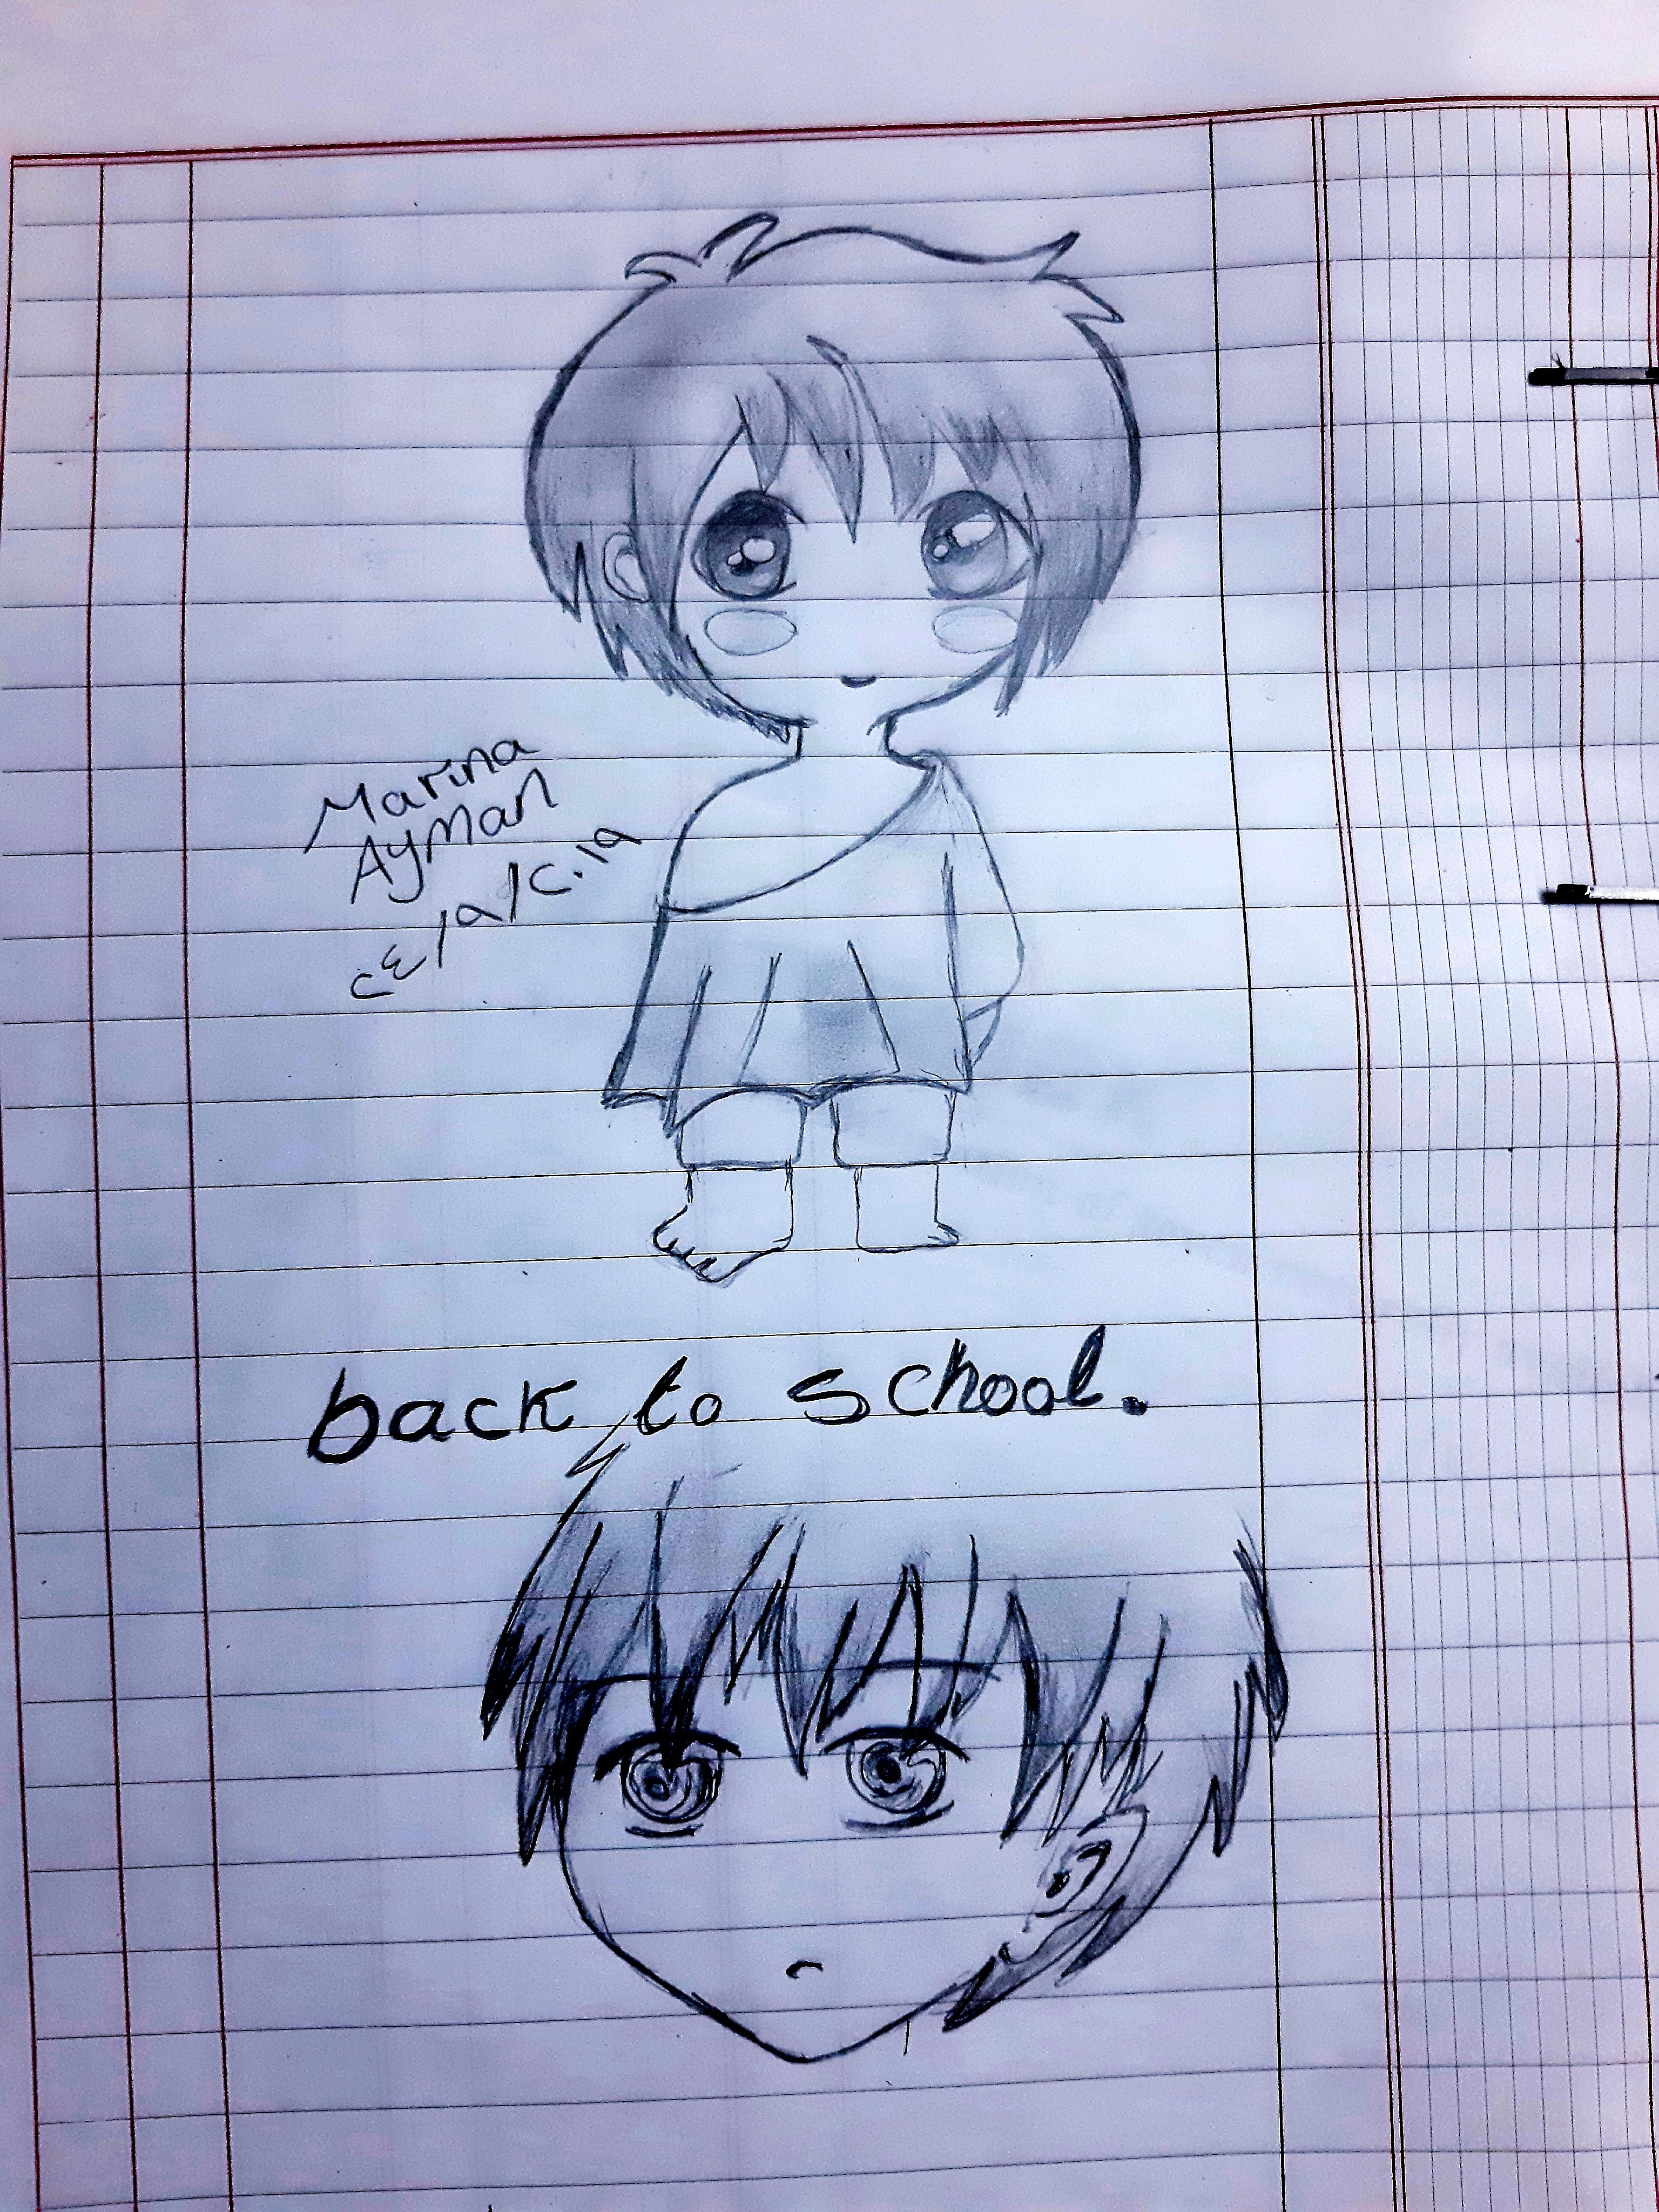 Marina
Ayman
٢٤/٩/٢٠١٩
back to school.